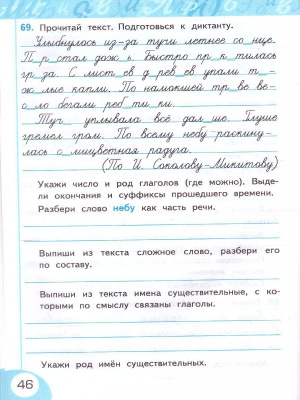 69. Прочитай текст. Подготовься к диктанту.
Улыбнулось из-за тучи летнее со нце.
П р стал дож ь. Быстро пр к тилась
гр за. С лист ев д рев ев упали т -
ж лые капли. По намокшей тр ве ве-
с ло бегали реб ти ки.
Туч уплывала всё дал ше. Глуше
гремел гром. По всему небу раскину-
лась с мицветная радуга.
(По И. Соколову-Микитову)
Укажи число и род глаголов (где можно). Выде-
ли окончания и суффиксы прошедшего времени.
Разбери слово небу как часть речи.
Выпиши из текста сложное слово, разбери его
по составу.
Выпиши из текста имена существительные, с ко-
торыми по смыслу связаны глаголы.
Укажи род имён существительных.
46